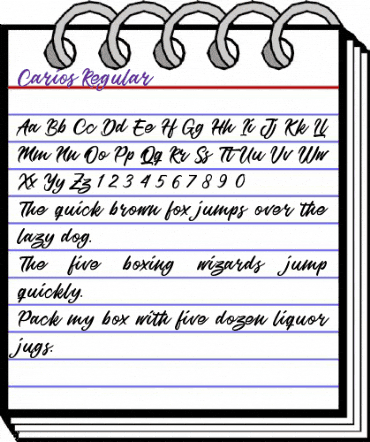 Carios Regular
Aa Bb Cc Dd Ee Ff Gg Hh Ii Jj Kk Ll
Mm Nn Oo Pp Qq Rr Ss Tt Uu Vv Ww
Xx Yy Zz 1 2 3 4 5 6 7 8 9 0
The quick brown fox jumps over the
lazy dog.
The five boxing wizards jump
quickly.
Pack my box with five dozen liquor
jugs.